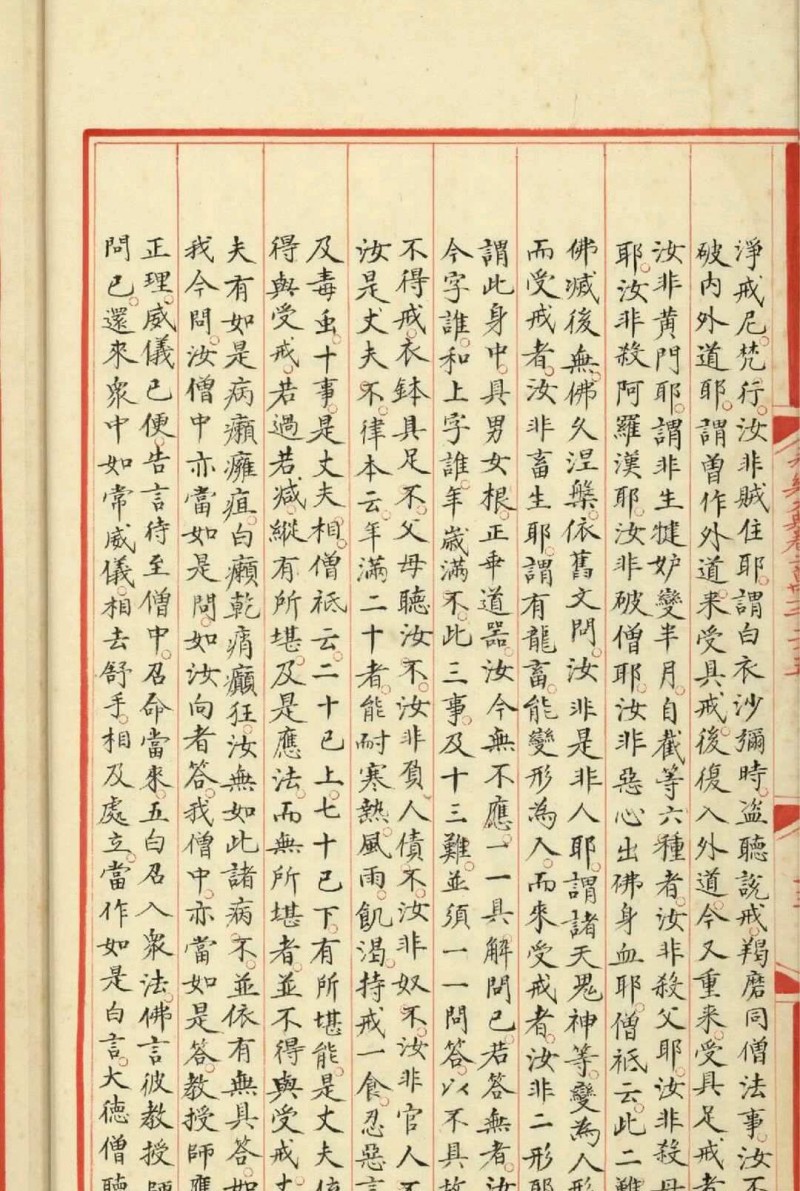 淨戒尼。梵行。汝非賊住耶。謂白衣沙彌時。盜聽說戒。羯磨同僧法事。汝不
破內外道耶。謂曽作外道。来受具戒。後復入外道。今又重来。受具足戒者
汝非黃門耶。謂非生犍妒變半月。自截等六種者。汝非殺父耶。汝非殺母
耶。汝非殺阿羅漢耶。汝非破僧耶。汝非惡心出佛身血耶。僧祇云。此二難
佛滅後無。佛久涅槃。依舊文問。汝非是非人耶。謂諸天鬼神等。變為人形
而受戒者。汝非畜生耶。謂有龍畜。能變形為人。而来受戒者。汝非二形耶
謂此身中。具男女根。正乖道器。汝今無不應。一一具解問已。若答無者。汝
今字誰。和上字誰。年歲滿不。此三事。及十三難。並須一一問答。以不具故
不得戒。衣鉢具足不。父母聽汝不。汝非負人債不。汝非奴不。汝非官人不
汝是丈夫不。律本云。年滿二十者。能耐寒熱。風雨。飢渴。持戒一食。忍惡言
及毒虫。十事。是丈夫相。僧祇云。二十已上。七十已下。有所堪能。是丈夫位
得與受戒。若過若減。縱有所堪。及是應法。而無所堪者。並不得與受戒丈
夫有如是病。癩癰疽。白癩乾痟癲狂。汝無如此諸病不。並依有無具答。如
我今問。汝僧中亦當如是問。如汝向者答。我僧中。亦當如是答。教授師應
正理。威儀已。便告言待至僧中。召命當来。五白召入衆法。佛言彼教授師
問已。還来衆中如常威儀。相去舒手。相及處立。當作如是白言。大德僧聽